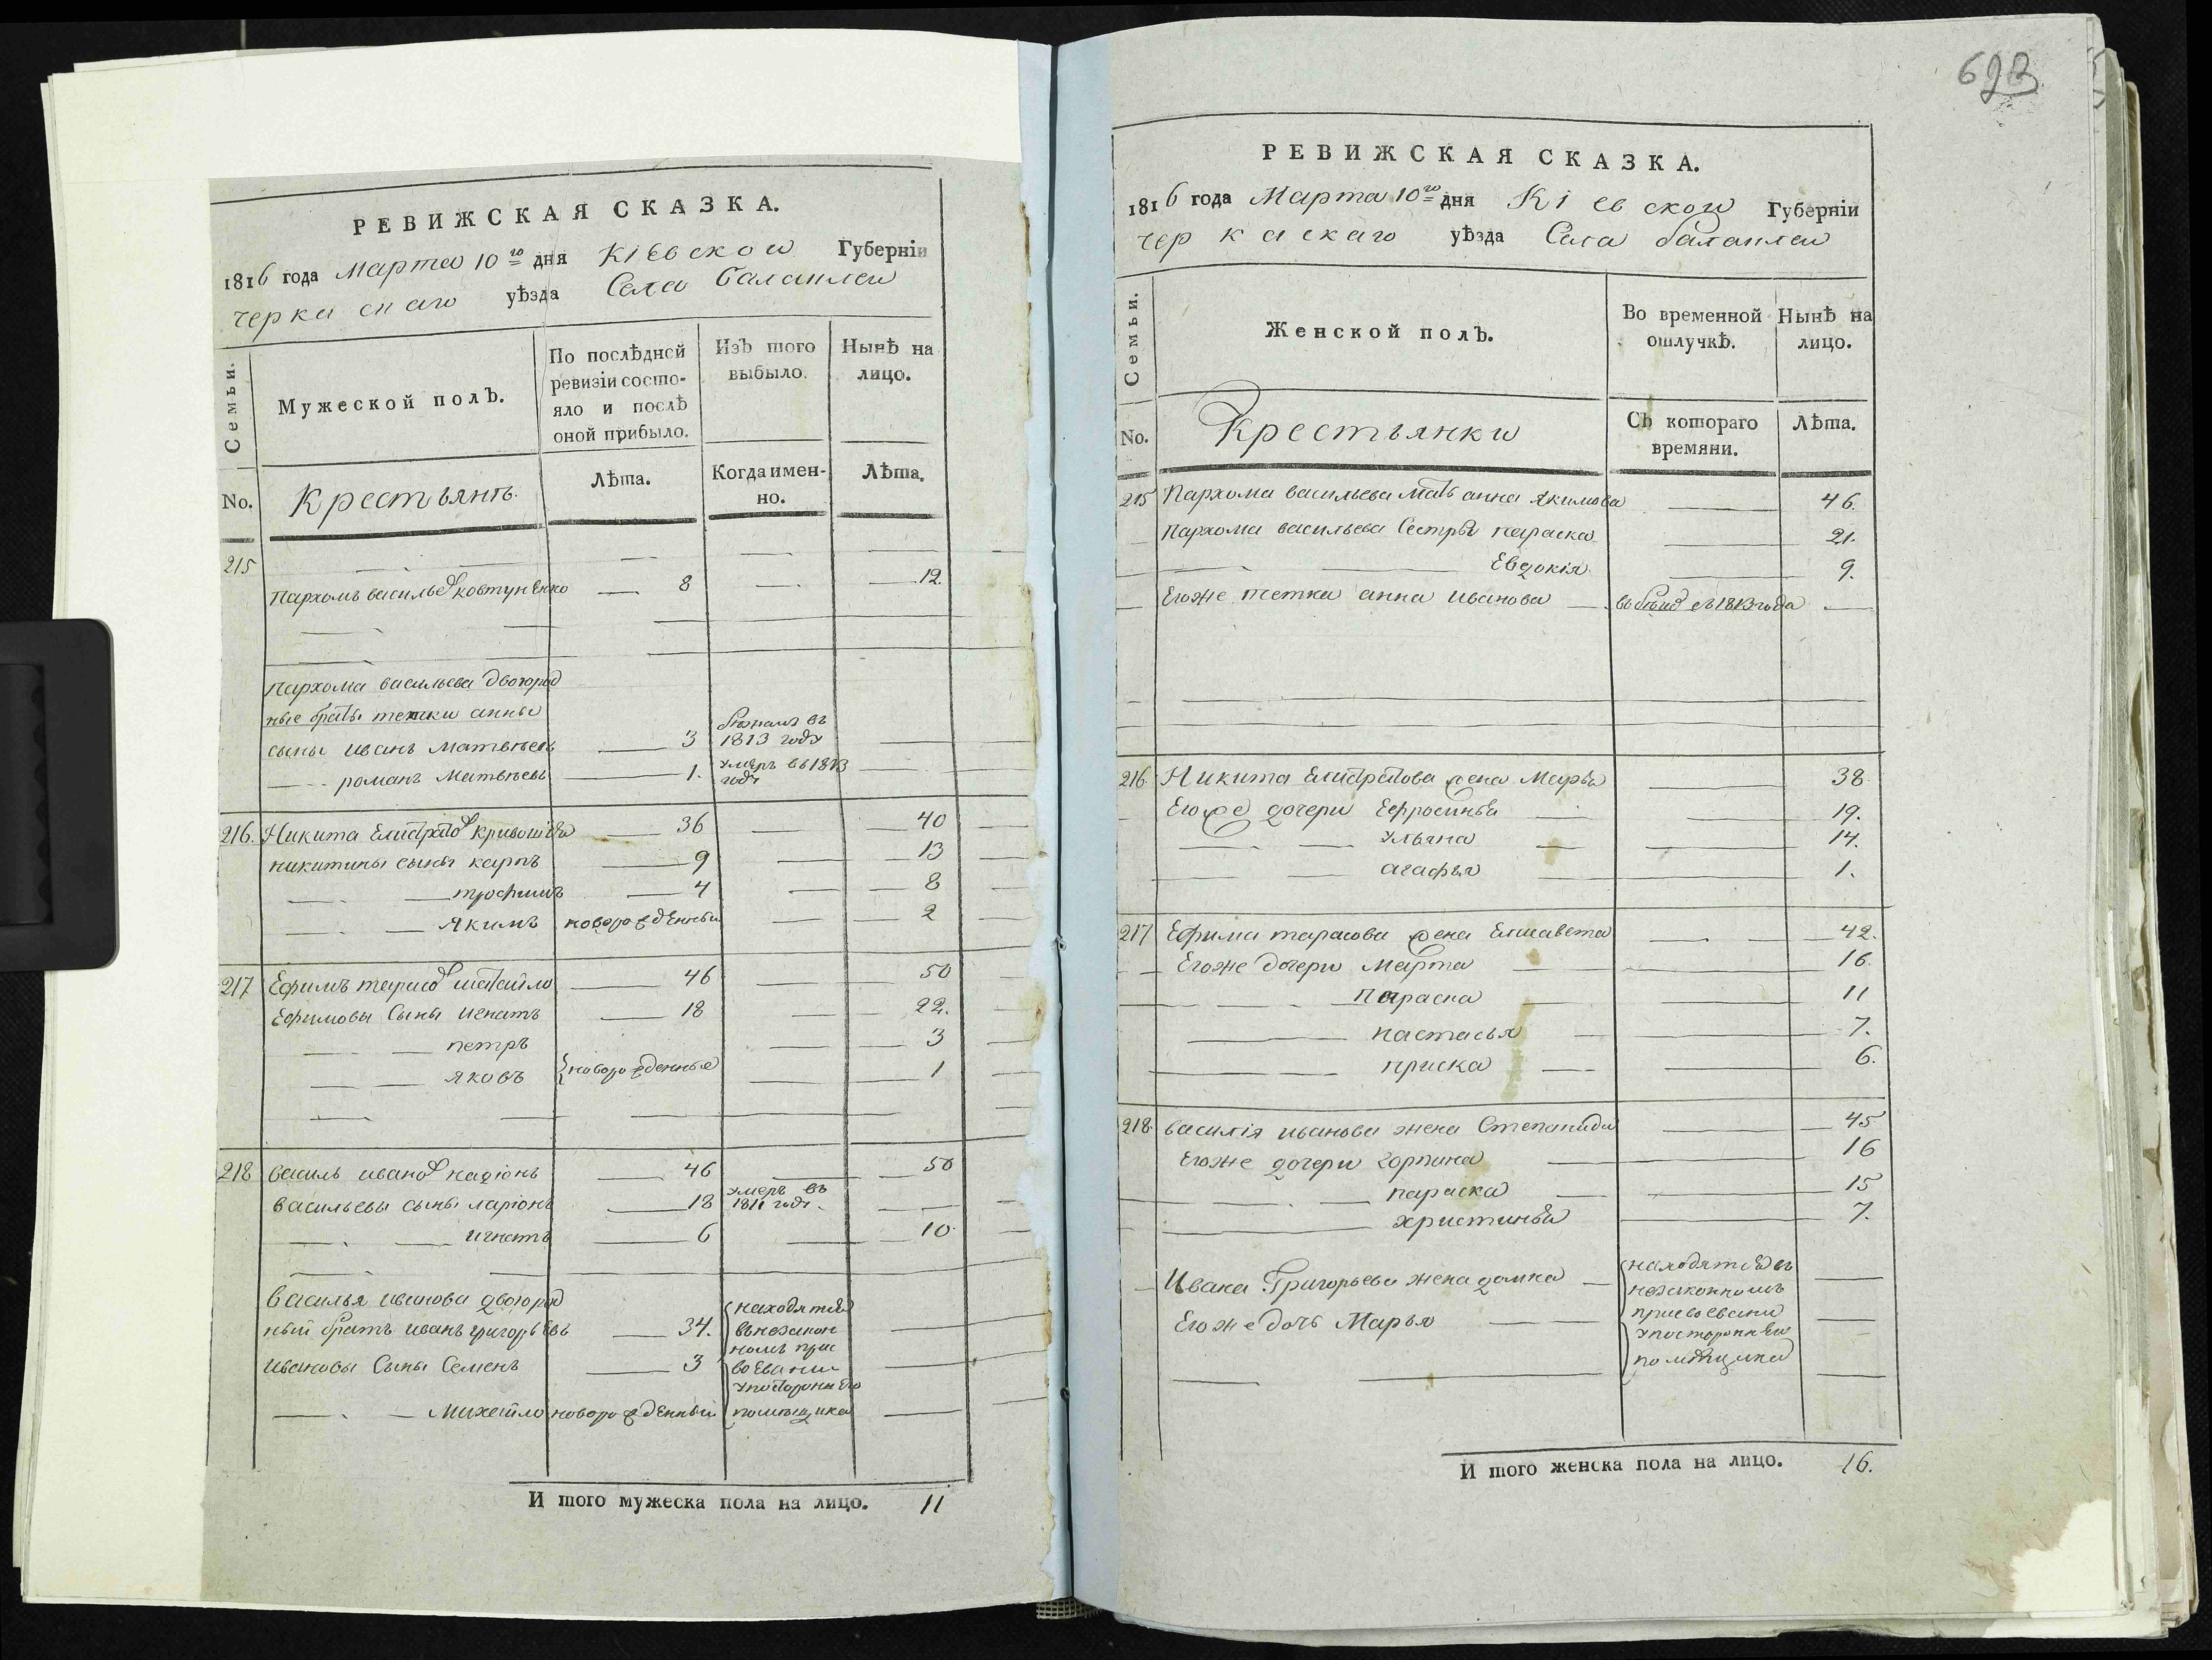 РЕВИЖСКАЯ СКАЗКА.
1816 года Марта 10го дня Кіевской Губерніи
черкаскаго уѣзда Села баланлеи
Семьи.
Мужеской полъ.
По послѣдней ревизіи состояло и послѣ оной прибыло.
Изъ того выбыло.
Нынѣ на лицо.
No.
Крестьянъ
Лѣта.
Когда именно.
Лѣта.
215
Пархомъ василье ковтуненко 8 12.
Пархома васильева двоюрод
ные браты тетки анны
сыны иванъ матвѣевъ 3 въ 1813 году
романъ матвѣевъ 1. умеръ въ 1813 году
216. Никита Елистратов 36 40
никитины сыны карпъ 9 13
трофимъ 4 8
Якимъ новорожденный 2
217 Ефимъ тарасов 46 50
Ефимовы Сыны игнатъ 18 22.
петръ 3
яковъ новорожденные 1
218 василь иванов 46 50
васильевы сыны ларіонъ 18 умеръ въ 1811 годе.
игнатъ 6 10
василья иванова двоюрод
ный братъ иванъ григорьевъ 34. находятся въ незаконномъ
ивановы Сыны Семенъ 3
Михайло новорожденный помещика
И того мужеска пола на лицо. 11
623
РЕВИЖСКАЯ СКАЗКА.
1816 года Марта 10го дня Кіевской Губерніи
черкаскаго уѣзда Села баланлеи
Семьи.
Женской полъ.
Во временной отлучкѣ.
Нынѣ на лицо.
No.
Крестьянки
Съ котораго времяни.
Лѣта.
215 Пархома васильева мать анна Якимова 46.
Пархома васильева Сестры параска 21.
Евдокія 9.
Его же тетка анна иванова съ 1813 года
216 Никита Елистратова жена Марья 38
Его же дочери Ефросинья 19.
Ульяна 14.
агафья 1.
217 Ефима тарасова жена Елисавета 42.
Его же дочери Марта 16
Параска 11
настасья 7.
приска 6.
218 василія иванова жена Степанида 45
Его же дочери горпина 16
параска 15
христинья 7.
Ивана Григорьева жена домка находятся въ незаконномъ
Его же дочь Марья
И того женска пола на лицо. 16.